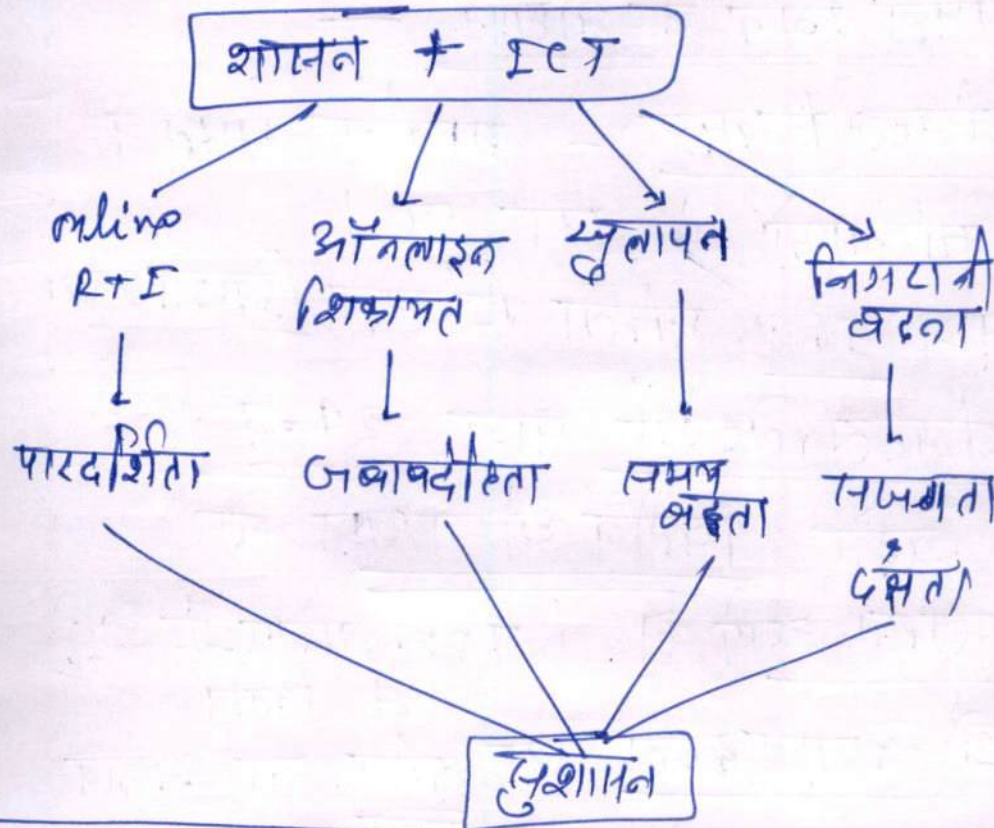 शासन + ICT
online
RTI
ऑनलाइन
शिकायत
खुलापन
निगरानी
बढ़ना
पारदर्शिता
जबावदेहिता
समय
बद्धता
सजगता
दक्षता
सुशासन